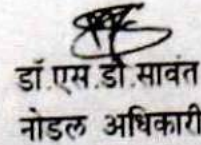 डॉ.एस.डी.सावंत
नोडल अधिकारी